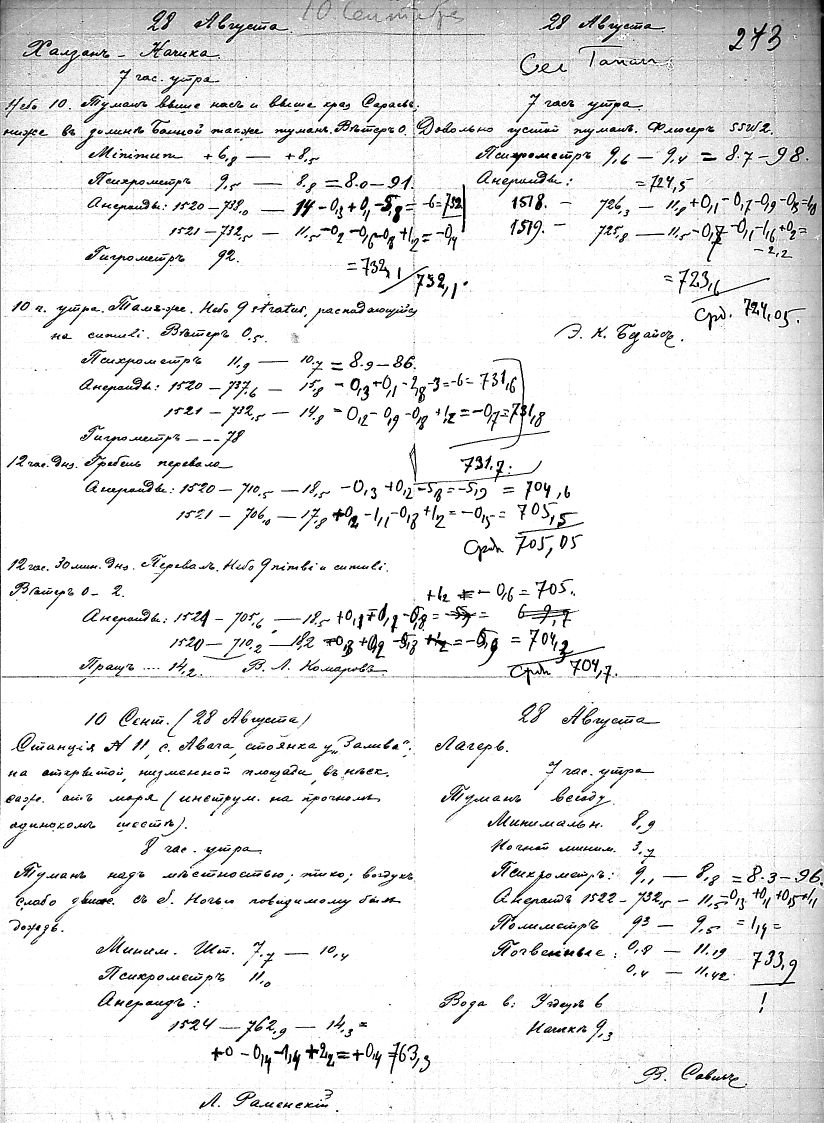 10 Сентября
243
28 Августа
Халзанъ – Начика
7 час. утра
Небо 10. Туманъ выше насъ и выше края
ниже въ долинѣ Банной также туманъ. Вѣтеръ 0.
Minimum +6,8 — +8,5
Психрометръ 9,5 — 8,8 = 8.0 – 91.
Анероиды: 1520 – 738,0 — 14 – 0,3 + 0,1 – 5,8 = –6 = 732
1521 – 732,5 — 11,5 – 0,2 – 0,6 – 0,8 + 1,2 = –0,4
Гигрометръ 92.
= 732,1
732,1.
10 ч. утра. Тамъ же. Небо 9 stratus, распадающійся
на cumuli. Вѣтеръ 0,5.
Психрометръ 11,9 — 10,7 = 8.9 – 86.
Анероиды: 1520 – 737,6 — 15,8 – 0,3 + 0,1 – 2,8 – 3 = –6 = 731,6
1521 – 732,5 — 14,8 – 0,2 – 0,9 – 0,8 + 1,2 = –0,7 = 731,8
Гигрометръ – – – 78
731,7.
12 час. дня. Гребень перевала
Анероиды: 1520 – 710,5 — 18,5 – 0,3 + 0,2 – 5,8 = –5,9 = 704,6
1521 – 706,0 — 17,8 + 0,2 – 1,1 – 0,8 + 1,2 = –0,5 = 705,5
Срдн 705,05
12 час. 30 мин. дня. Перевалъ. Небо 9 nimbi и cumuli.
Вѣтеръ 0 – 2.
+1,2 = – 0,6 = 705.
Анероиды: 1521 – 705,6 — 18,5
1520 – 710,2 — 18,2 = 704,3
Пращъ .... 14,2. В. Л. Комаровъ
Срдн 704,7.
28 Августа
7 часъ утра
Довольно густой туманъ. Флюгеръ SSW 2.
Психрометръ 9,6 — 9,4 = 8.7 – 98.
Анероиды: = 724,5
1518. – 726,3 — 11,8 + 0,1 – 0,7 – 0,9 – 0,3 = 1,8
1519. – 725,8 — 11,5 – 0,7 – 0,1 – 1,6 + 0,2 =
– 2,2
= 723,6
Срд. 724,05.
10 Сент. (28 Августа)
Станція № 11, с. Авача, стоянка у „Залива“,
на открытой, низменной площади, въ нѣск.
саж. отъ моря (инструм. на прочномъ
одинокомъ шестѣ).
8 час. утра
Туманъ надъ мѣстностью; тихо; воздухъ
слабо движ. съ S. Ночью повидимому былъ
дождь.
Миним. Шт. 7,7 — 10,4
Психрометръ 11,0
Анероидъ:
1524 — 762,9 — 14,3 =
+0 – 0,4 – 1,4 + 2,2 = +0,4 763,3
Л. Раменскій
28 Августа
Лагерь.
7 час. утра
Туманъ всюду.
Минимальн. 8,9
Ночной миним. 3,7
Психрометръ: 9,1 — 8,8 = 8.3 – 96.
Анероидъ 1522 – 732,5 – 11,5 – 0,3 + 0,1 + 0,5 + 1,1
Полиметръ 93 – 9,5 = 1,4 =
Почвенные: 0,8 — 11,19
0,4 — 11,42.
733,9
!
Вода в:
Начикѣ 9,3
В. Савичъ.